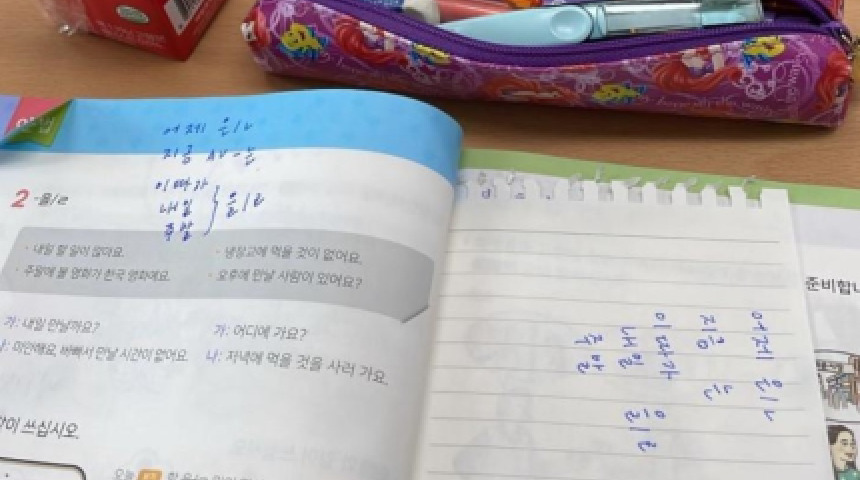 어제 은/ㄴ
지금 AV-는
이따가
내일
주말
을/ㄹ
2 -을/ㄹ
· 내일 할 일이 많아요.
· 냉장고에 먹을 것이 없어요.
· 주말에 볼 영화가 한국 영화예요.
· 오후에 만날 사람이 있어요?
가: 내일 만날까요?
미안해요. 바빠서 만날 시간이 없어요.
가: 어디에 가요?
나: 저녁에 먹을 것을 사러 가요.
쓰십시오.
오늘
어제 은/ㄴ
지금 는
이따가
내일 을/ㄹ
주말
준비합니